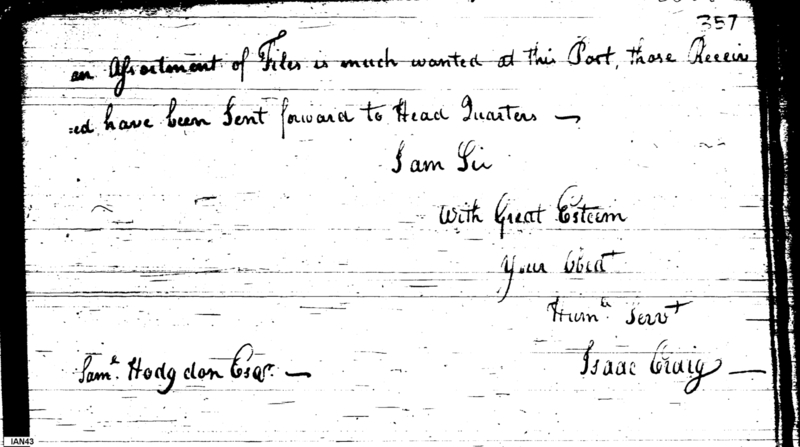 357
an Assortment of Files is much wanted at this Post, those Receiv
=ed have been Sent forward to Head Quarters —
I am Sir
With Great Esteem
Your Obedt
Humle Servt
Isaac Craig —
Saml. Hodgdon Esqr. —
IAN43